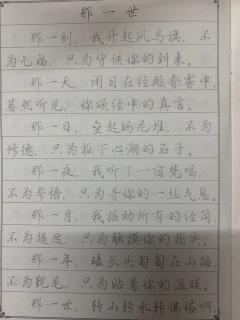 那一世
那一刻，我升起风马旗，不
为乞福，只为守候你的到来。
那一天，闭目在经殿香雾中，
蓦然听见，你颂经中的真言。
那一日，垒起玛尼堆，不为
修德，只为投下心湖的石子。
那一夜，我听了一宿梵唱，
不为参悟，只为寻你的一丝气息。
那一月，我摇动所有的经筒，
不为超度，只为触摸你的指尖。
那一年，磕长头匍匐在山路，
不为觐见，只为贴着你的温暖。
那一世，转山转水转佛塔啊